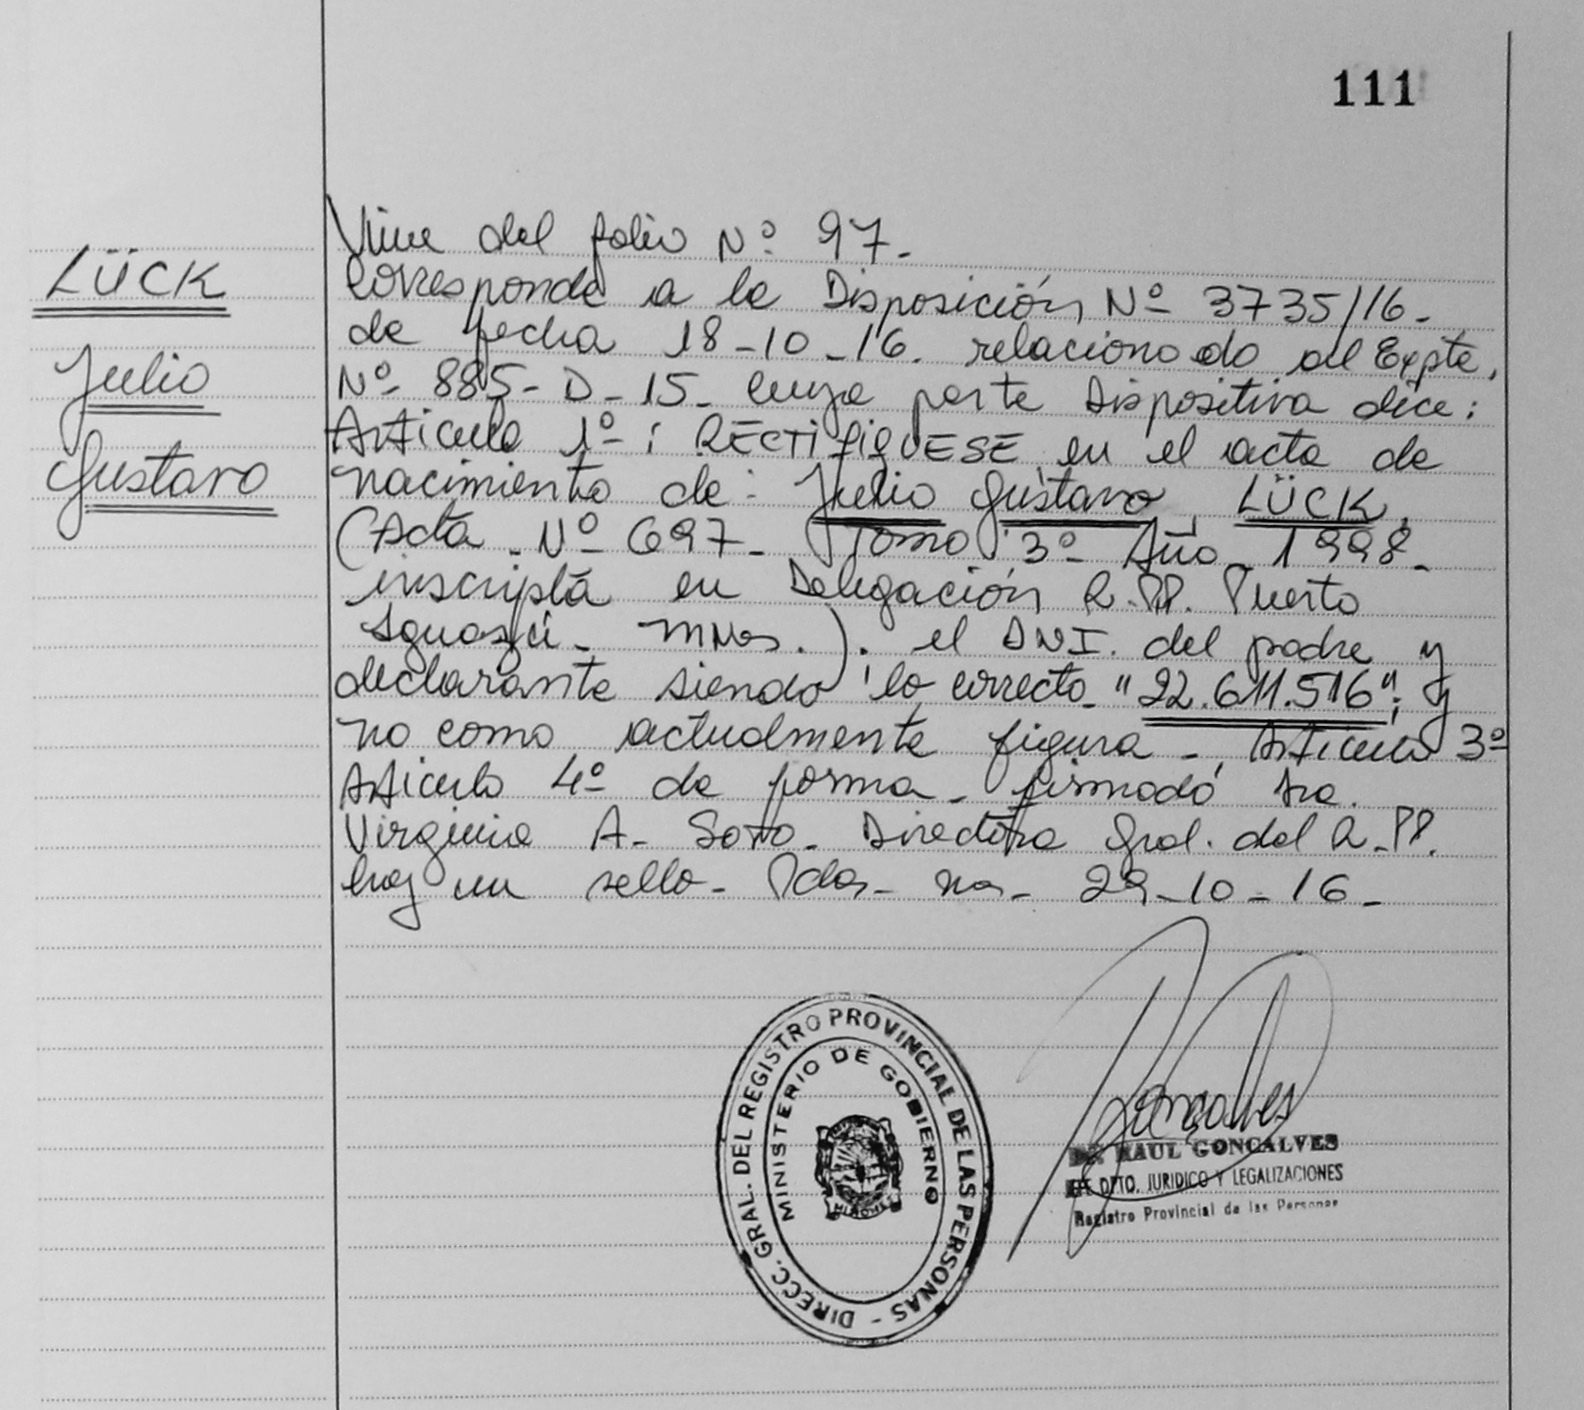 111
LÜCK
Julio
Gustavo
Viene del folio Nº 97.
Corresponde a la Disposición Nº 3735/16-
de fecha 18-10-16. relacionado al Expte,
Nº 885-D-15- cuya parte dispositiva dice:
Articulo 1º-: RECTIFIQUESE en el acta de
nacimiento de: Julio Gustavo LÜCK,
(Acta Nº 697- Tomo 3º- Año 1998-
inscripta en Delegación R.PP. Puerto
Iguazú- Mnes.). el DNI. del padre y
declarante siendo lo correcto "22.611.516"; y
no como actualmente figura-, Articulo 3º
Articulo 4º de forma- firmado Sra.
Virginia A. Soto- Directora Gral. del R.PP.
hay un sello- Pdas- Mns- 29-10-16-
DIRECC. GRAL. DEL REGISTRO PROVINCIAL DE LAS PERSONAS -
MINISTERIO DE GOBIERNO
MISIONES
Goncalves
Dr. RAUL GONCALVES
JEFE DPTO. JURIDICO Y LEGALIZACIONES
Registro Provincial de las Personas